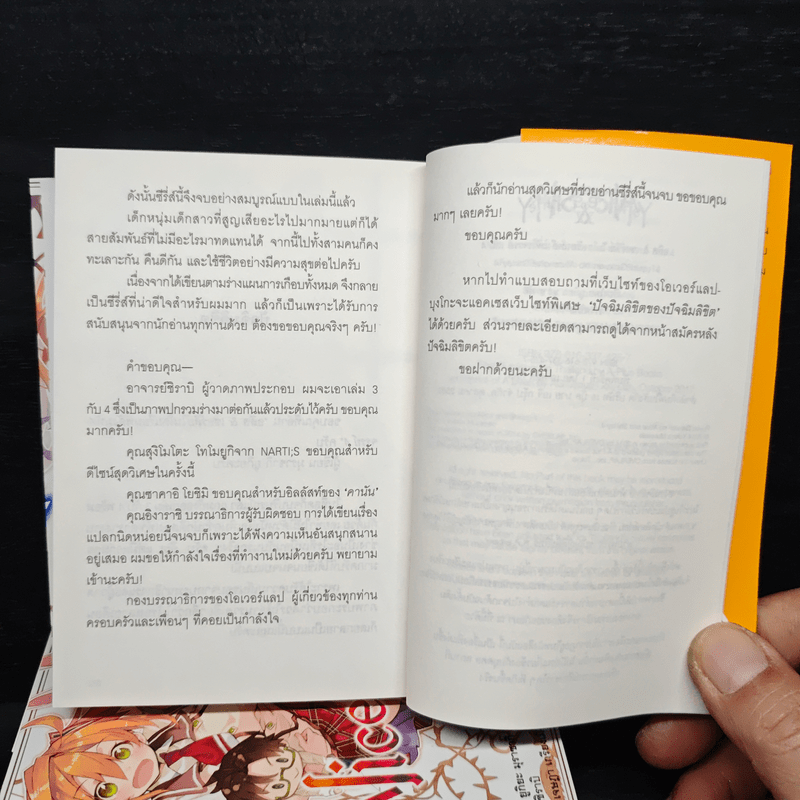 ดังนั้นซีรี่ส์นี้จึงจบอย่างสมบูรณ์แบบในเล่มนี้แล้ว
เด็กหนุ่มเด็กสาวที่สูญเสียอะไรไปมากมายแต่ก็ได้
สายสัมพันธ์ที่ไม่มีอะไรมาทดแทนได้ จากนี้ไปทั้งสามคนก็คง
ทะเลาะกัน คืนดีกัน และใช้ชีวิตอย่างมีความสุขต่อไปครับ
เนื่องจากได้เขียนตามร่างแผนการเกือบทั้งหมด จึงกลาย
เป็นซีรี่ส์ที่น่าดีใจสำหรับผมมาก แล้วก็เป็นเพราะได้รับการ
สนับสนุนจากนักอ่านทุกท่านด้วย ต้องขอขอบคุณจริงๆ ครับ!
คำขอบคุณ—
อาจารย์ชิราบิ ผู้วาดภาพประกอบ ผมจะเอาเล่ม 3
กับ 4 ซึ่งเป็นภาพปกรวมร่างมาต่อกันแล้วประดับไว้ครับ ขอบคุณ
มากครับ!
คุณสุงิโมโตะ โทโมยูกิจาก NARTI;S ขอบคุณสำหรับ
ดีไซน์สุดวิเศษในครั้งนี้
คุณซาคาอิ โยชิมิ ขอบคุณสำหรับอิลลัสท์ของ ‘คานัน’
คุณอิงาราชิ บรรณาธิการผู้รับผิดชอบ การได้เขียนเรื่อง
แปลกนิดหน่อยนี้จนจบก็เพราะได้ฟังความเห็นอันสนุกสนาน
อยู่เสมอ ผมขอให้กำลังใจเรื่องที่ทำงานใหม่ด้วยครับ พยายาม
เข้านะครับ!
กองบรรณาธิการของโอเวอร์แลป ผู้เกี่ยวข้องทุกท่าน
ครอบครัวและเพื่อนๆ ที่คอยเป็นกำลังใจ
แล้วก็นักอ่านสุดวิเศษที่ช่วยอ่านซีรี่ส์นี้จนจบ ขอขอบคุณ
มากๆ เลยครับ!
ขอบคุณครับ
หากไปทำแบบสอบถามที่เว็บไซท์ของโอเวอร์แลป-
บุงโกะจะแอคเซสเว็บไซท์พิเศษ ‘ปัจฉิมลิขิตของปัจฉิมลิขิต’
ได้ด้วยครับ ส่วนรายละเอียดสามารถดูได้จากหน้าสมัครหลัง
ปัจฉิมลิขิตครับ!
ขอฝากด้วยนะครับ